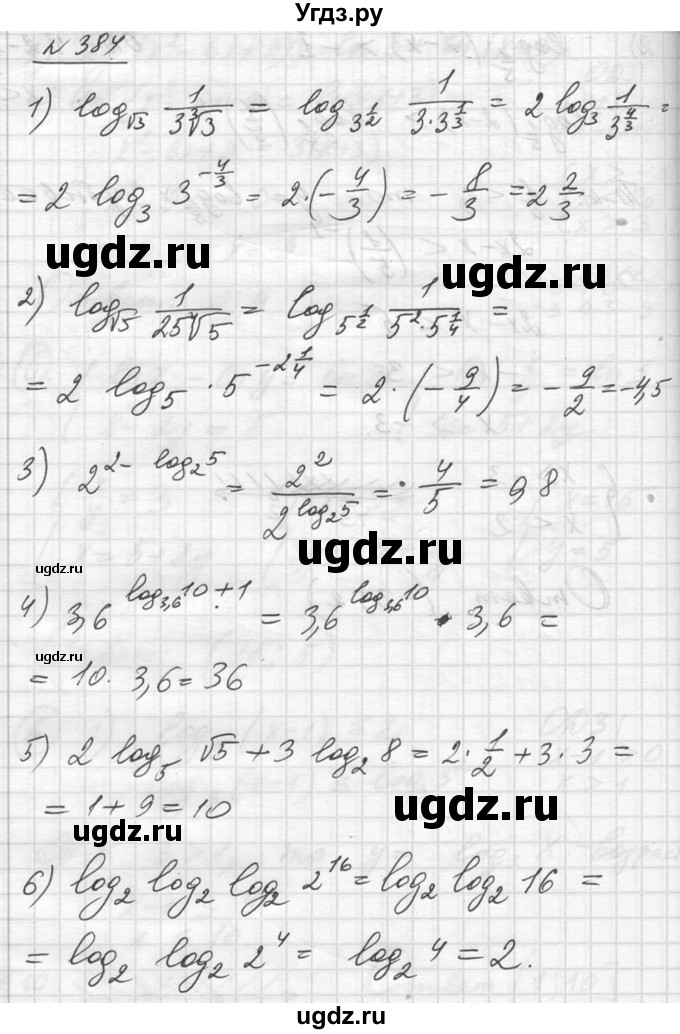 Угдз.ру
N 384
1) log_√3 1/(3∛3) = log_3^(1/2) 1/(3·3^(1/3)) = 2 log_3 1/3^(4/3) =
= 2 log_3 3^(-4/3) = 2·(-4/3) = -8/3 = -2 2/3
ugdz.ru
ugdz.ru
2) log_√5 1/(25∜5) = log_5^(1/2) 1/(5^2·5^(1/4)) =
= 2 log_5 · 5^(-2 1/4) = 2·(-9/4) = -9/2 = -4,5
3) 2^(2-log_2 5) = 2^2/2^(log_2 5) = · 4/5 = 0,8
ugdz.ru
ugdz.ru
4) 3,6^(log_3,6 10+1) = 3,6^(log_3,6 10) · 3,6 =
ugdz.ru
= 10·3,6 = 36
5) 2 log_5 √5 + 3 log_2 8 = 2·1/2 + 3·3 =
= 1+9 = 10
ugdz.ru
ugdz.ru
6) log_2 log_2 log_2 2^16 = log_2 log_2 16 =
= log_2 log_2 2^4 = log_2 4 = 2.
ugdz.ru
ugdz.ru